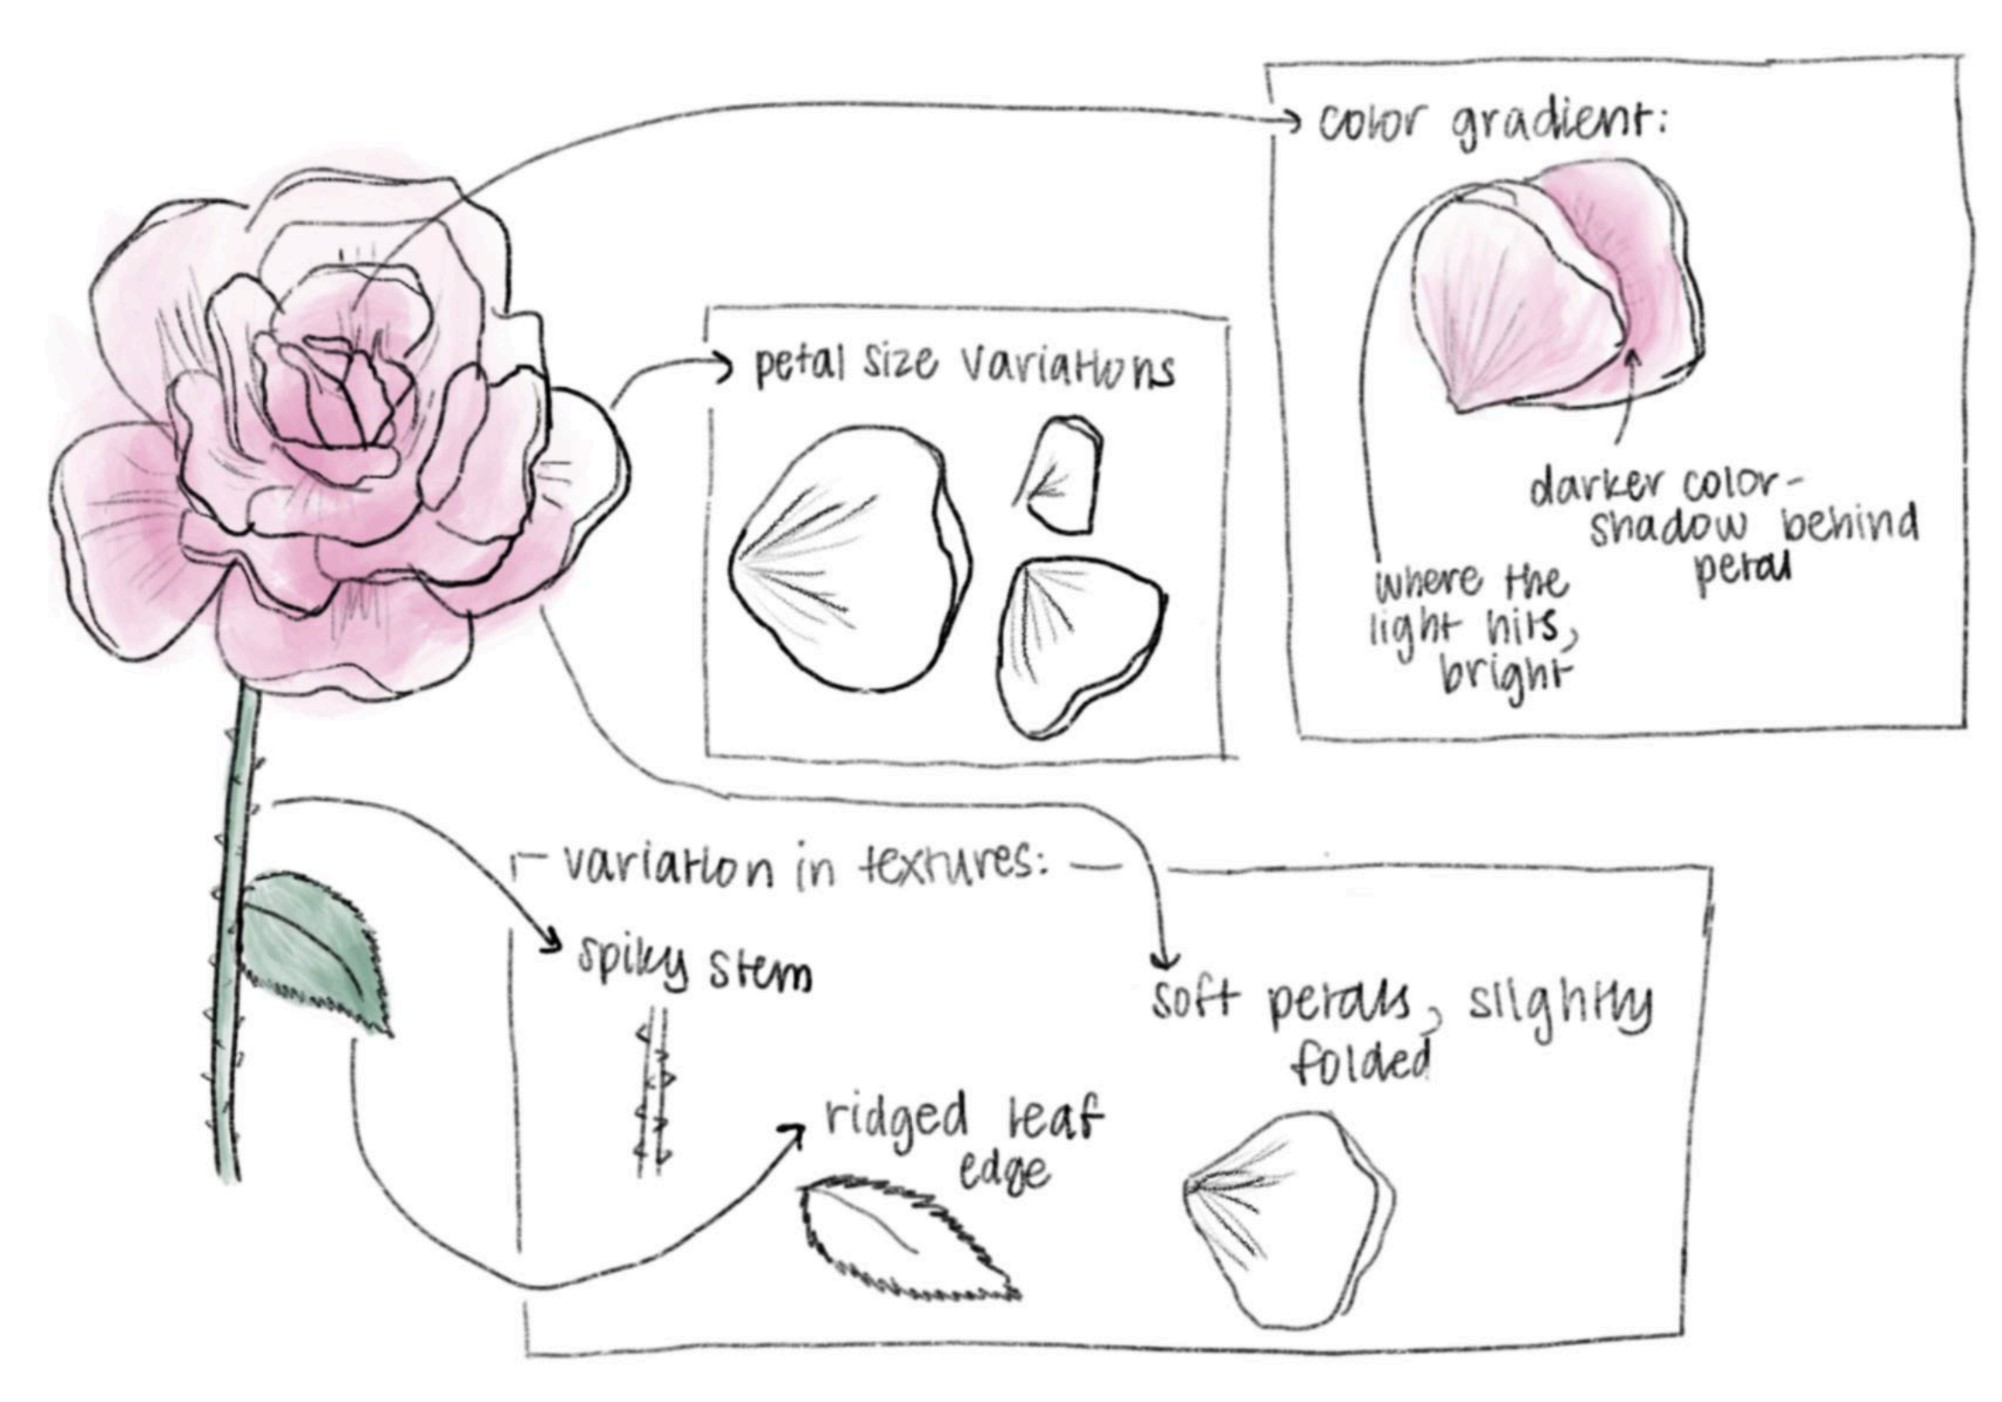 color gradient:
darker color-
shadow behind
petal
where the
light hits,
bright
petal size variations
variation in textures:
spiky stem
ridged leaf
edge
soft petals, slightly
folded